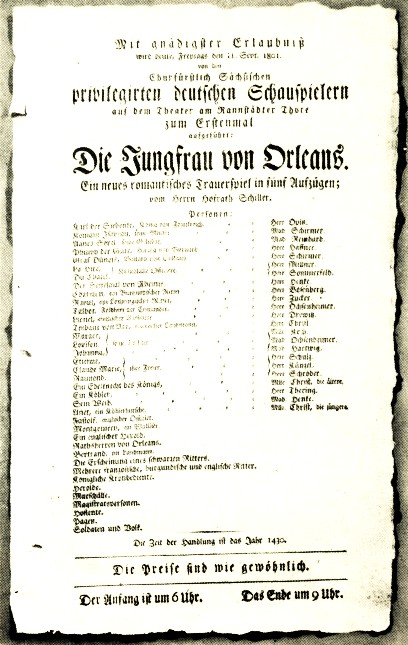 Mit gnädigster Erlaubniß
wird heute, Freytags den 11. Sept. 1801.
von den
Churfürstlich Sächsischen
privilegirten deutschen Schauspielern
auf dem Theater am Rannstädter Thore
zum Erstenmal
aufgeführt:
Die Jungfrau von Orleans.
Ein neues romantisches Trauerspiel in fünf Aufzügen;
vom Herrn Hofrath Schiller.
Personen:
Karl der Siebente, König von Frankreich. Herr Opitz.
Königin Isabeau, seine Mutter. Mad.
Agnes Sorel, seine Geliebte. Mad. Reinhard.
Philipp der Gute, Herzog von Burgund. Herr Haffner.
Graf Dünois, Bastard von Orleans. Herr
La Hire, Herr
Du Chatel, königliche Offiziere. Herr
Der Erzbischof von Rheims. Herr Henke.
Chatillon, ein Burgundischer Ritter. Herr Bösenberg.
Raoul, ein Lothringischer Ritter. Herr Zucker.
Talbot, Feldherr der Engländer. Herr Ochsenheimer.
Lionel, Herr Drewitz.
Thibaut von Arc, ein reicher Landmann. Herr Christ.
Margot, Mlle.
Louison, seine Töchter. Mad. Ochsenheimer.
Johanna, Mad. Hartwig.
Etienne, Herr
Claude Marie, ihre Freier. Herr
Raimond, Herr Schröder.
Ein Edelknecht des Königs, Mlle. Christ, die ältere.
Ein Köhler. Herr Thering.
Sein Weib. Mad. Henke.
Anet, ein Köhlerbursche. Mlle. Christ, die jüngere.
Fastolf, englischer Offizier.
Montgomery, ein Walliser.
Ein englischer Herold.
Rathsherren von Orleans.
Bertrand, ein Landmann.
Die Erscheinung eines schwarzen Ritters.
Mehrere französische, burgundische und englische Ritter.
Königliche Kronbediente.
Herolde.
Marschälle.
Magistratspersonen.
Hofleute.
Pagen.
Soldaten und Volk.
Die Zeit der Handlung ist das Jahr 1430.
Die Preise sind wie gewöhnlich.
Der Anfang ist um 6 Uhr. Das Ende um 9 Uhr.